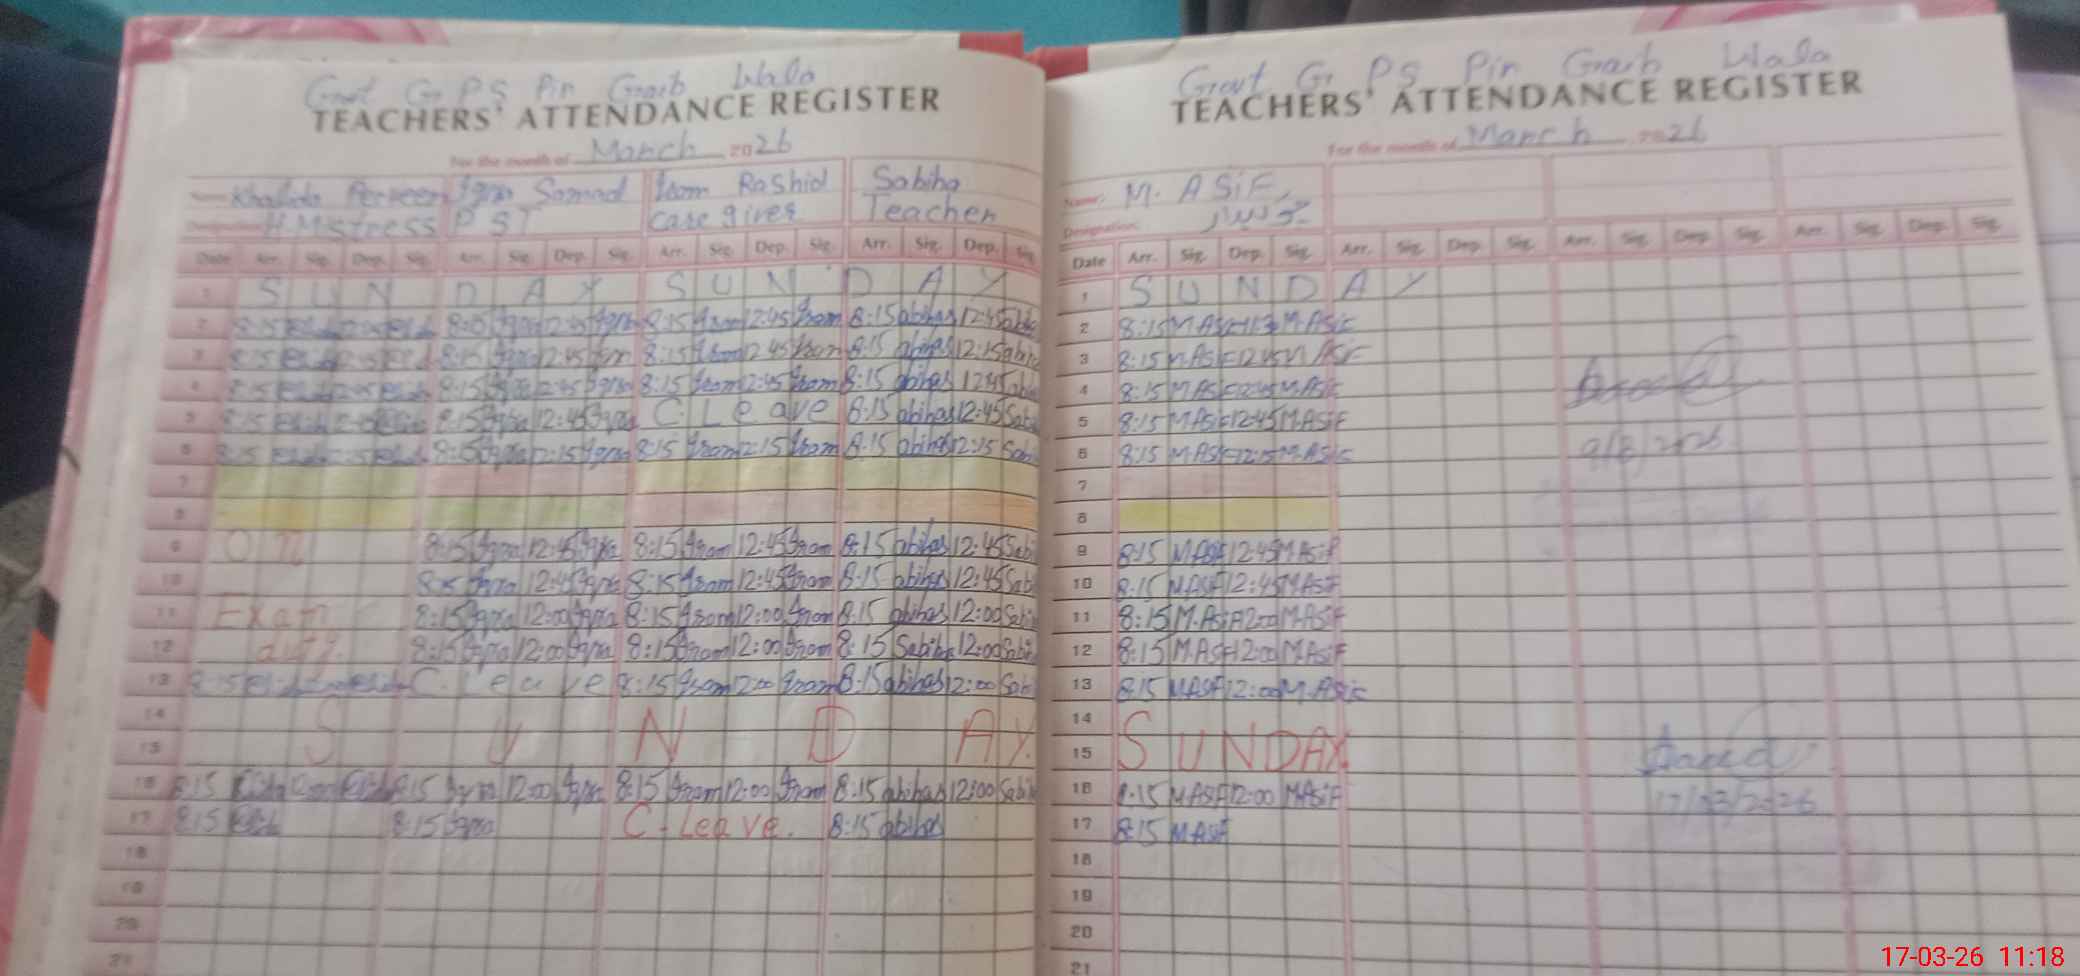 Govt G P S Pin Garib Wala
TEACHERS' ATTENDANCE REGISTER
For the month of March 2026
Name Khalida Perveen Iqra Samad Iram Rashid Sabiha
Designation H.Mistress PST Care giver Teacher
Date Arr. Sig. Dep. Sig. Arr. Sig. Dep. Sig. Arr. Sig. Dep. Sig. Arr. Sig. Dep. Sig.
1 S U N D A Y S U N D A Y
2 8:15 8:15 Iqra 12:45 Iqra 8:15 Iram 12:45 Iram 8:15 Sabiha 12:45 Sabiha
3 8:15 8:15 Iqra 12:45 Iqra 8:15 Iram 12:45 Iram 8:15 Sabiha 12:15 Sabiha
4 8:15 8:15 Iqra 12:45 Iqra 8:15 Iram 12:45 Iram 8:15 Sabiha 12:45 Sabiha
5 8:15 8:15 Iqra 12:45 Iqra C. Leave 8:15 Sabiha 12:45 Sabiha
6 8:15 8:15 Iqra 12:15 Iqra 8:15 Iram 12:15 Iram 8:15 Sabiha 12:15 Sabiha
7
8
9 On 8:15 Iqra 12:45 Iqra 8:15 Iram 12:45 Iram 8:15 Sabiha 12:45 Sabi
10 8:15 Iqra 12:45 Iqra 8:15 Iram 12:45 Iram 8:15 Sabiha 12:45 Sabi
11 Exam 8:15 Iqra 12:00 Iqra 8:15 Iram 12:00 Iram 8:15 Sabiha 12:00 Sabi
12 duty. 8:15 Iqra 12:00 Iqra 8:15 Iram 12:00 Iram 8:15 Sabiha 12:00 Sabi
13 8:15 C. Leave 8:15 Iram 12:00 Iram 8:15 Sabiha 12:00 Sabi
14
15 S U N D A Y.
16 8:15 8:15 Iqra 12:00 Iqra 8:15 Iram 12:00 Iram 8:15 Sabiha 12:00 Sabi
17 8:15 8:15 Iqra C. Leave. 8:15 Sabiha
18
19
20
21
Govt G P S Pin Garib Wala
TEACHERS' ATTENDANCE REGISTER
For the month of March 2026
Name: M. ASiF
Designation: چوکیدار
Date Arr. Sig. Dep. Sig. Arr. Sig. Dep. Sig. Arr. Sig. Dep. Sig. Arr. Sig. Dep. Sig.
1 S U N D A Y
2 8:15 M.ASiF M.ASiF
3 8:15 M.ASiF 12:45 M.ASiF
4 8:15 M.ASiF 12:45 M.ASiF
5 8:15 M.ASiF 12:45 M.ASiF
6 8:15 M.ASiF 12:15 M.ASiF
7
8
9 8:15 M.ASiF 12:45 M.ASiF
10 8:15 M.ASiF 12:45 M.ASiF
11 8:15 M.ASiF 12:00 M.ASiF
12 8:15 M.ASiF 12:00 M.ASiF
13 8:15 M.ASiF 12:00 M.ASiF
14
15 S U N D A Y.
16 8:15 M.ASiF 12:00 M.ASiF
17/03/2026
17 8:15 M.ASiF
18
19
20
21
17-03-26 11:18